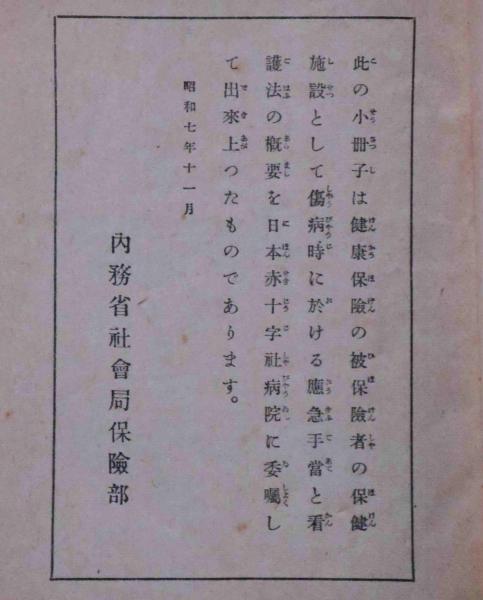 此の小冊子は健康保險の被保險者の保健
施設として傷病時に於ける應急手當と看
護法の槪要を日本赤十字社病院に委囑し
て出來上つたものであります。
昭和七年十一月
內務省社會局保險部